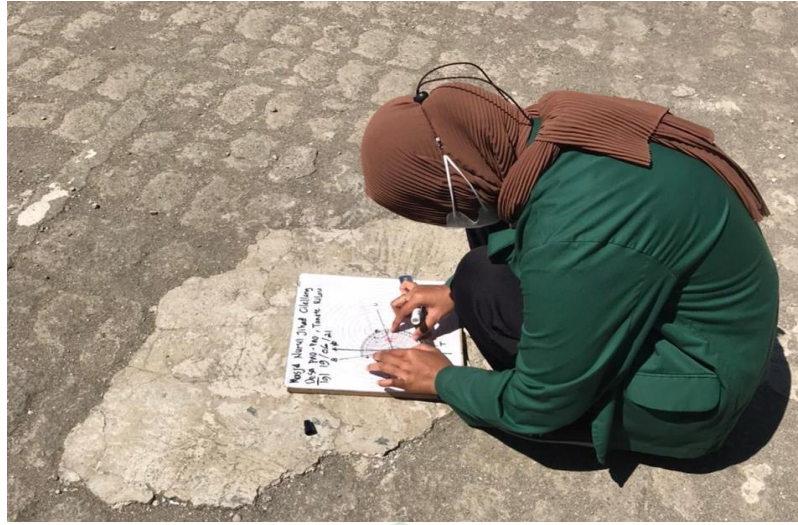 Masjid Nurul Jihad Cilellang
Desa Pao-Pao, Tanete Rilau
Tgl 19/06/21